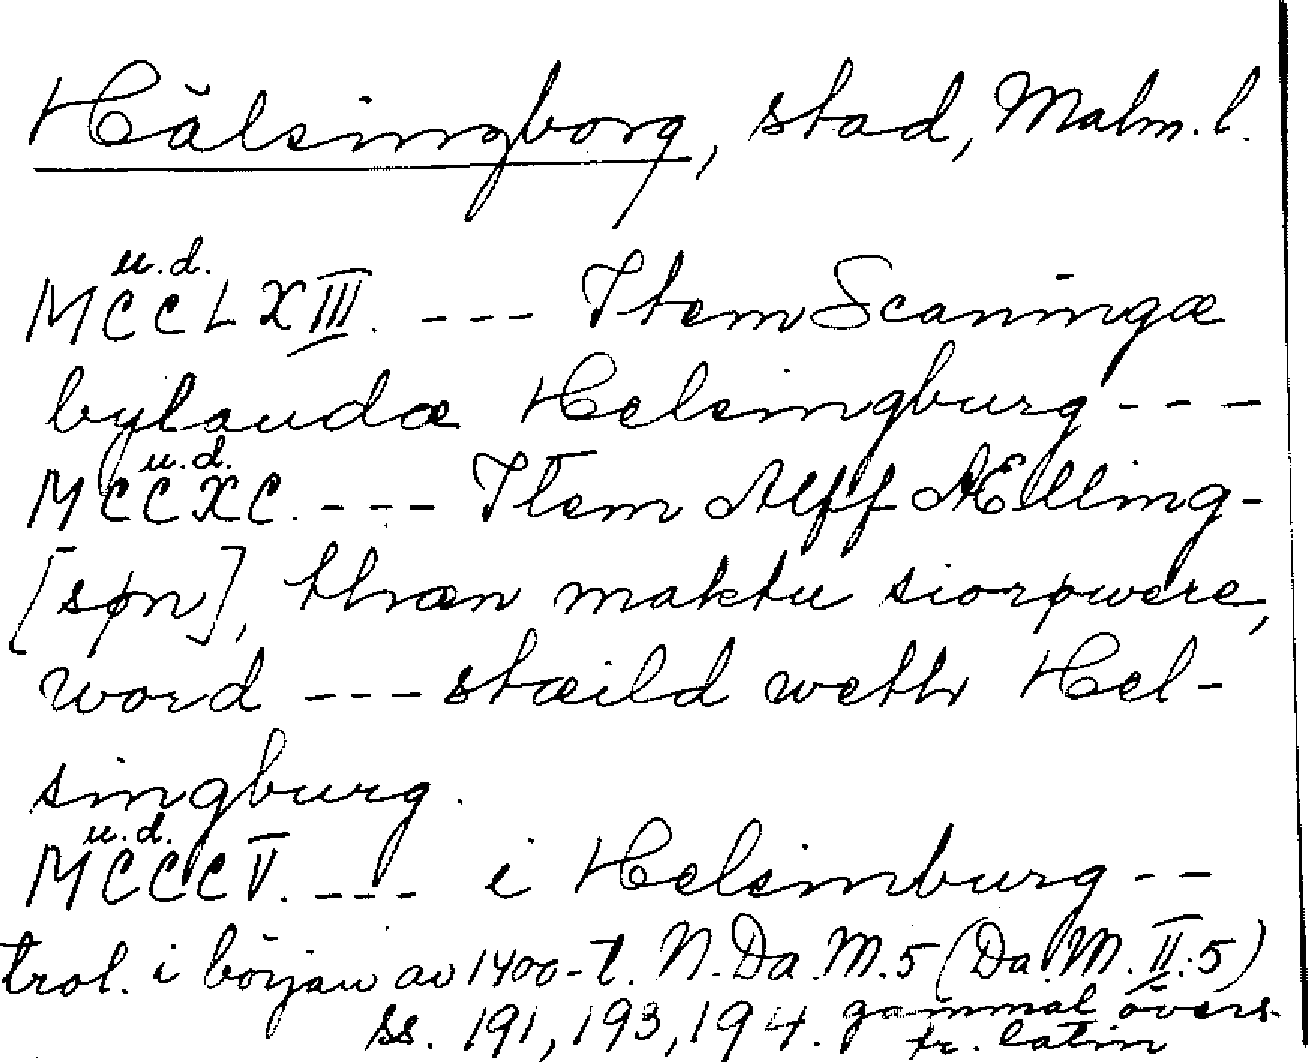 Hälsingborg, stad, Malm. l.
u.d.
MCCLXIII. --- Item Scaningæ
bylaudæ Helsingburg ---
u.d.
MCCXC. --- Item Alff Ælling-
[søn], thæn maktu siorøwere,
word --- stæild weth Hel-
singburg.
u.d.
MCCCV. --- i Helsinburg --
trol. i början av 1400-t. N. Da. M. 5 (Da. M. II:5)
ss. 191, 193, 194. gammal övers.
fr. latin